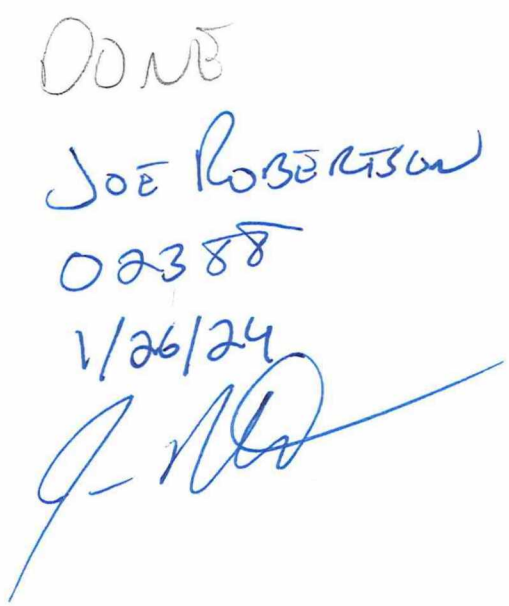 DONE
JOE ROBERTSON
02388
1/26/24